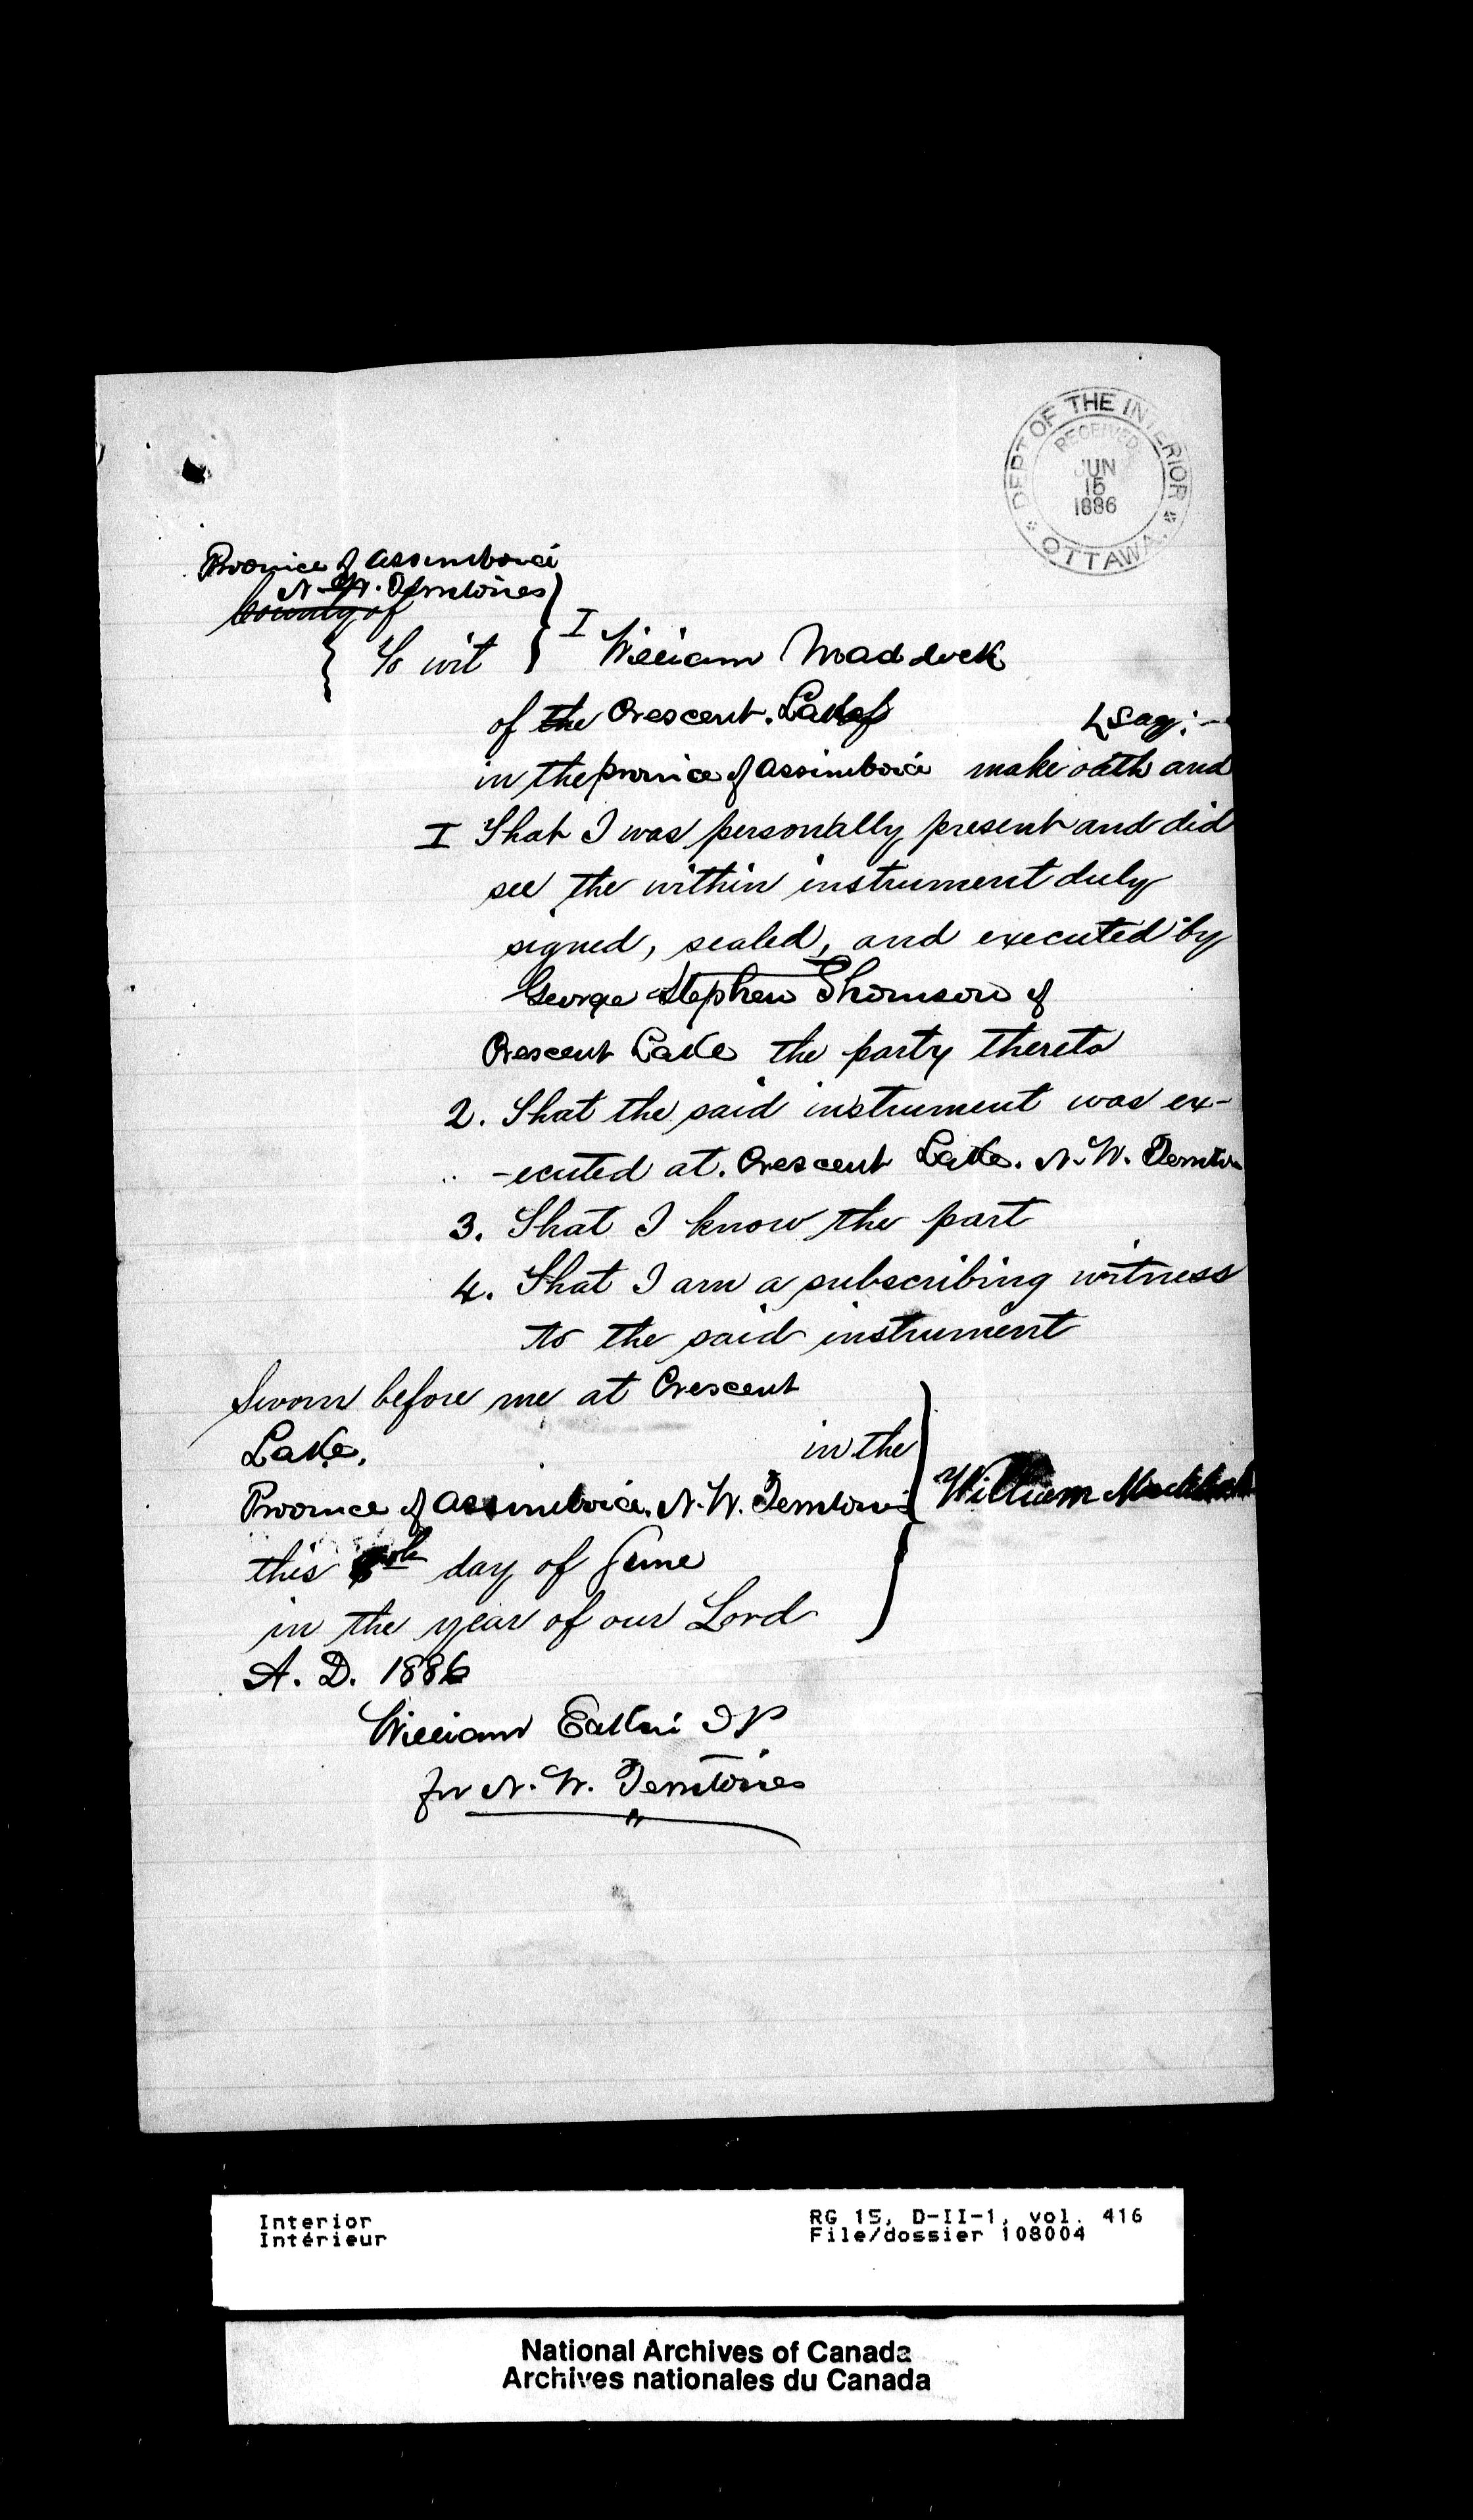 DEPT OF THE INTERIOR
RECEIVED
JUN
15
1886
OTTAWA.
Province of Assiniboia
N.W. Territories
County of
To wit I William Maddock
of the Crescent Lake
& say:-
in the province of Assiniboia make oath and
I That I was personally present and did
see the within instrument duly
signed, sealed, and executed by
George Stephen Thomson of
Crescent Lake the party thereto
2. That the said instrument was ex-
-ecuted at. Crescent Lake. N.W.
3. That I know the part
4. That I am a subscribing witness
to the said instrument
Sworn before me at Crescent
Lake, in the
Province of Assiniboia. N.W. Territories William
this day of June
in the year of our Lord
A. D. 1886
William J P
for N. W. Territories
Interior
Intérieur
RG 15, D-II-1, vol. 416
File/dossier 108004
National Archives of Canada
Archives nationales du Canada